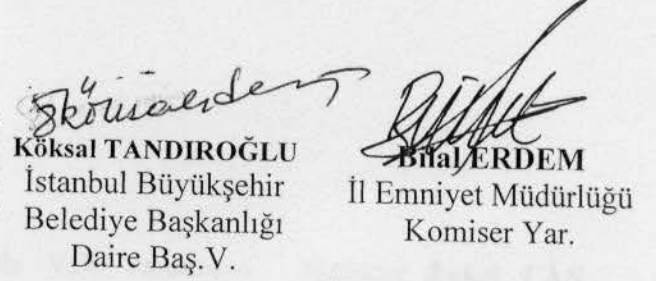 Köksal TANDIROĞLU
İstanbul Büyükşehir
Belediye Başkanlığı
Daire Baş.V.
Bilal ERDEM
İl Emniyet Müdürlüğü
Komiser Yar.